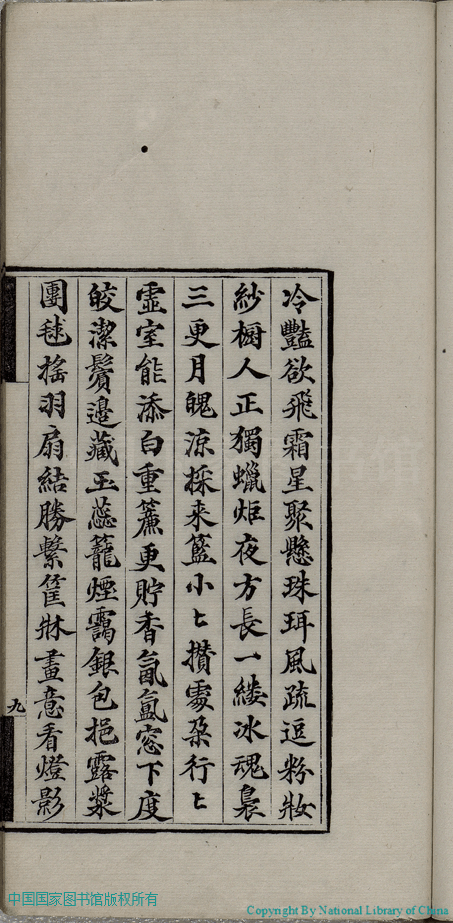 冷豔欲飛霜星聚懸珠珥風疏逗粉妝
紗橱人正獨蠟炬夜方長一縷冰魂裊
三更月魄涼採来籃小〻攢處朶行〻
虛室能添白重簾更貯香氤氳窓下度
皎潔鬢邊藏玉蕊籠煙靄銀包挹露漿
團毬摇羽扇結勝繫筐牀畫意看燈影
九
中国国家图书馆版权所有
Copyright By National Library of China